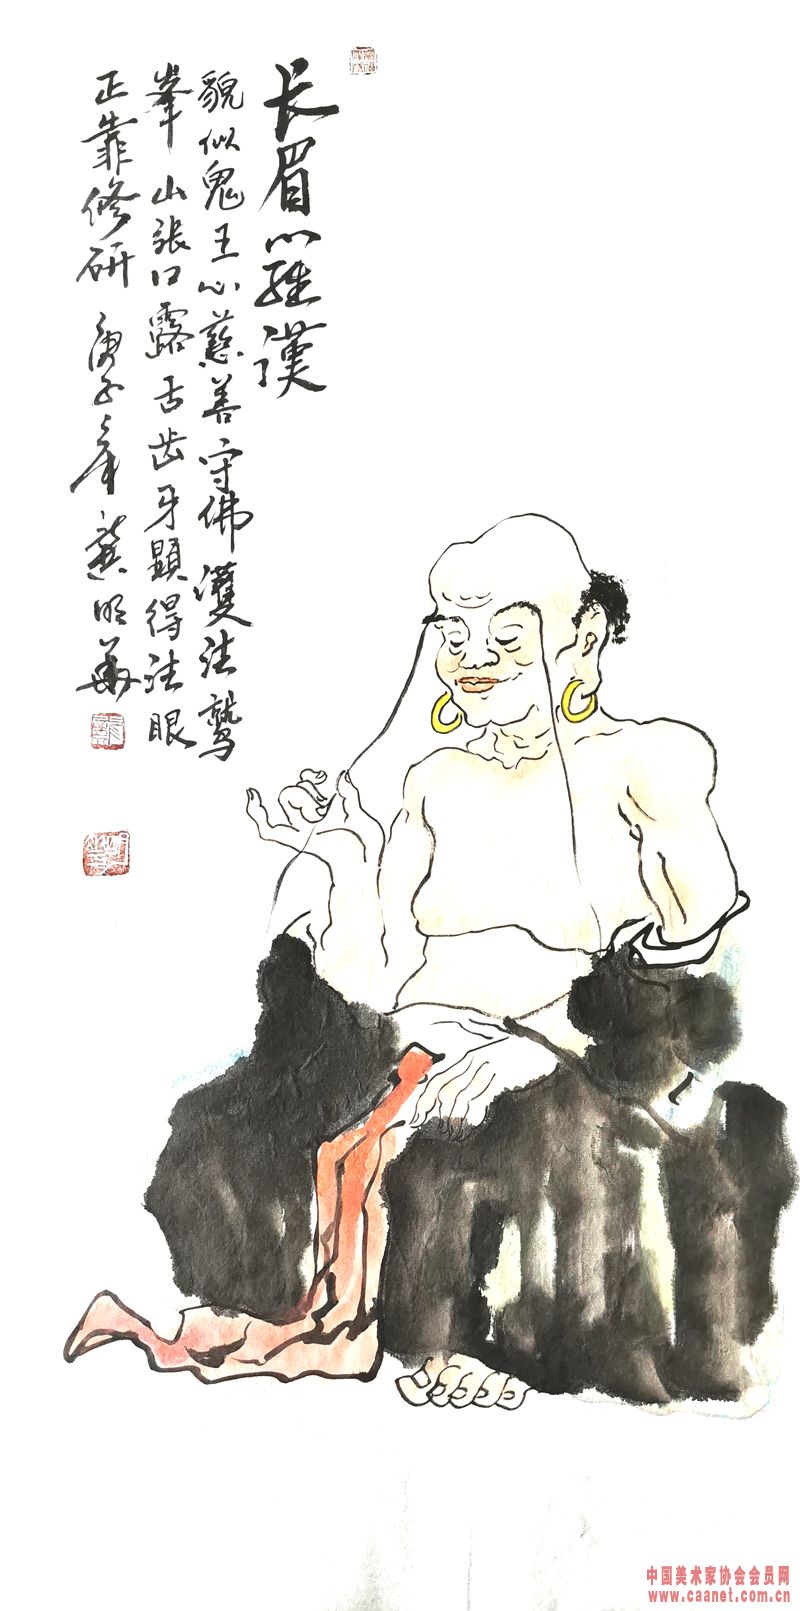 长眉羅漢
貌似鬼王心慈善守佛濩法鹫
峯山張口露舌齿牙顯得法眼
正靠修研 庚子年龚明華
中国美术家协会会员网
www.caanet.com.cn